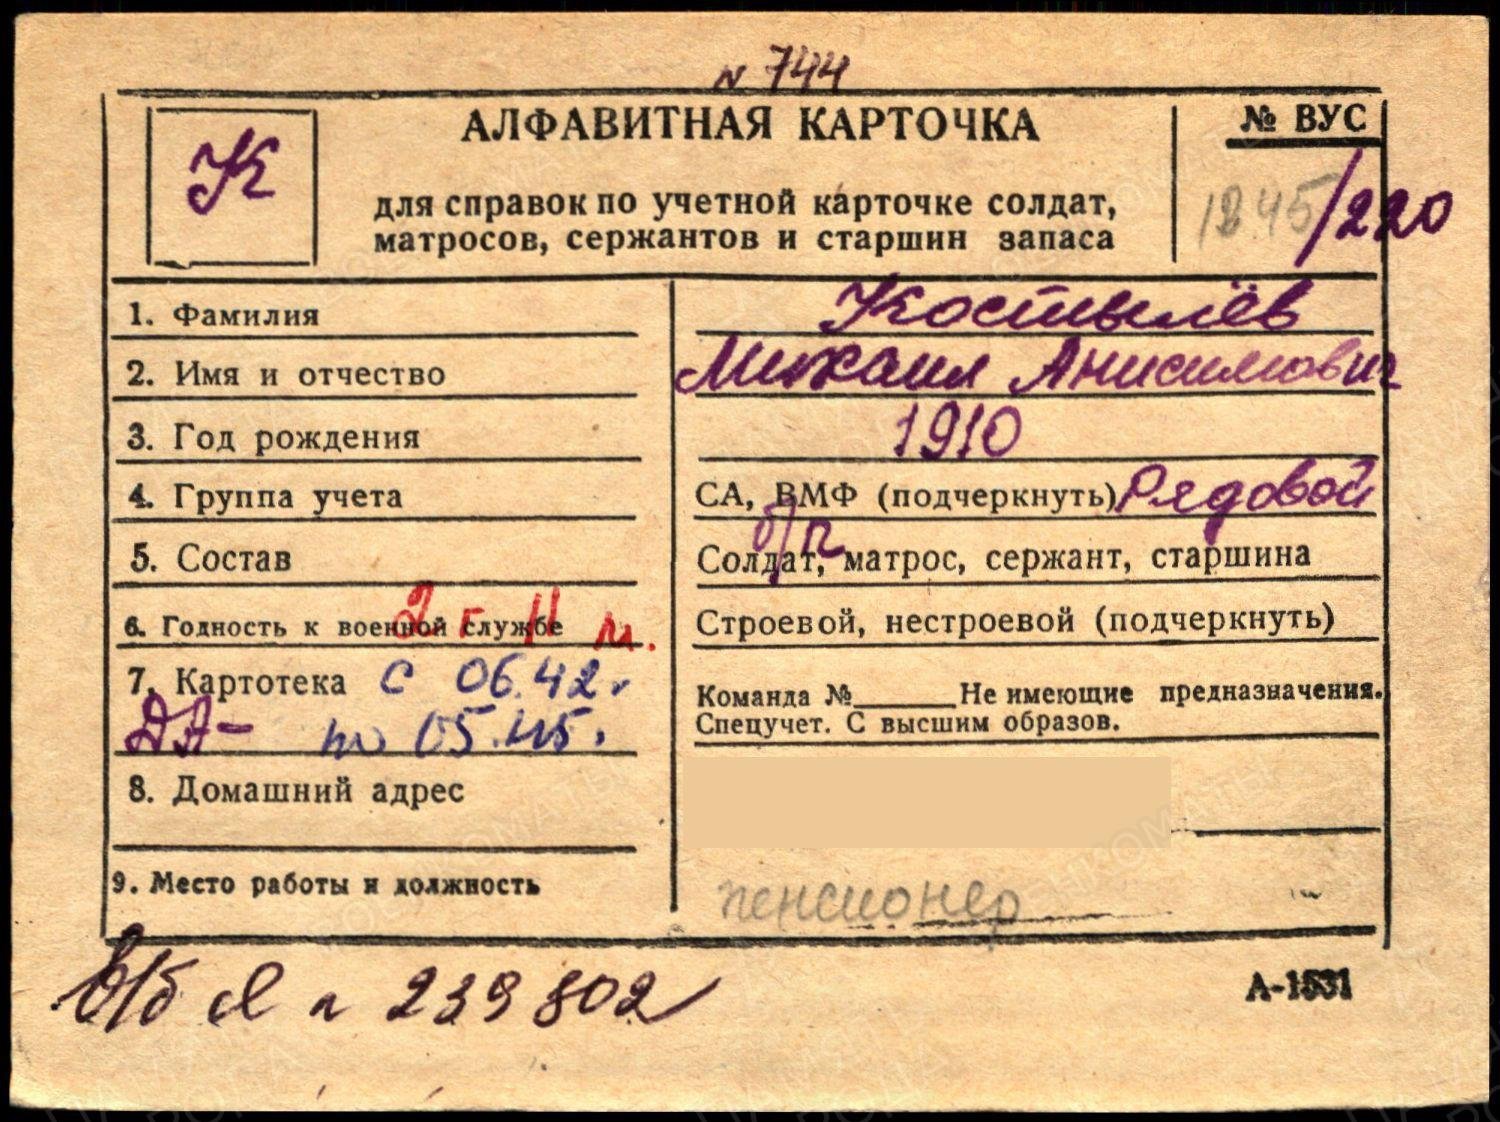 N 744
К
АЛФАВИТНАЯ КАРТОЧКА
для справок по учетной карточке солдат,
матросов, сержантов и старшин запаса
№ ВУС
/220
1. Фамилия Костылёв
2. Имя и отчество Михаил Анисимович
3. Год рождения 1910
4. Группа учета СА, ВМФ (подчеркнуть) Рядовой
б/п
5. Состав Солдат, матрос, сержант, старшина
6. Годность к военной службе 2 г 11 м. Строевой, нестроевой (подчеркнуть)
7. Картотека с 06.42 г Команда № Не имеющие предназначения.
ДА- по 05.45. Спецучет. С высшим образов.
8. Домашний адрес
9. Место работы и должность пенсионер
в/б Я n 239802
А-1531